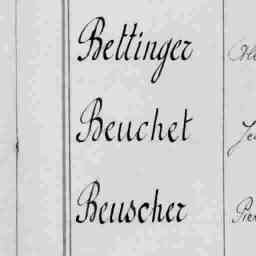 Bettinger
Beuchet
Beuscher